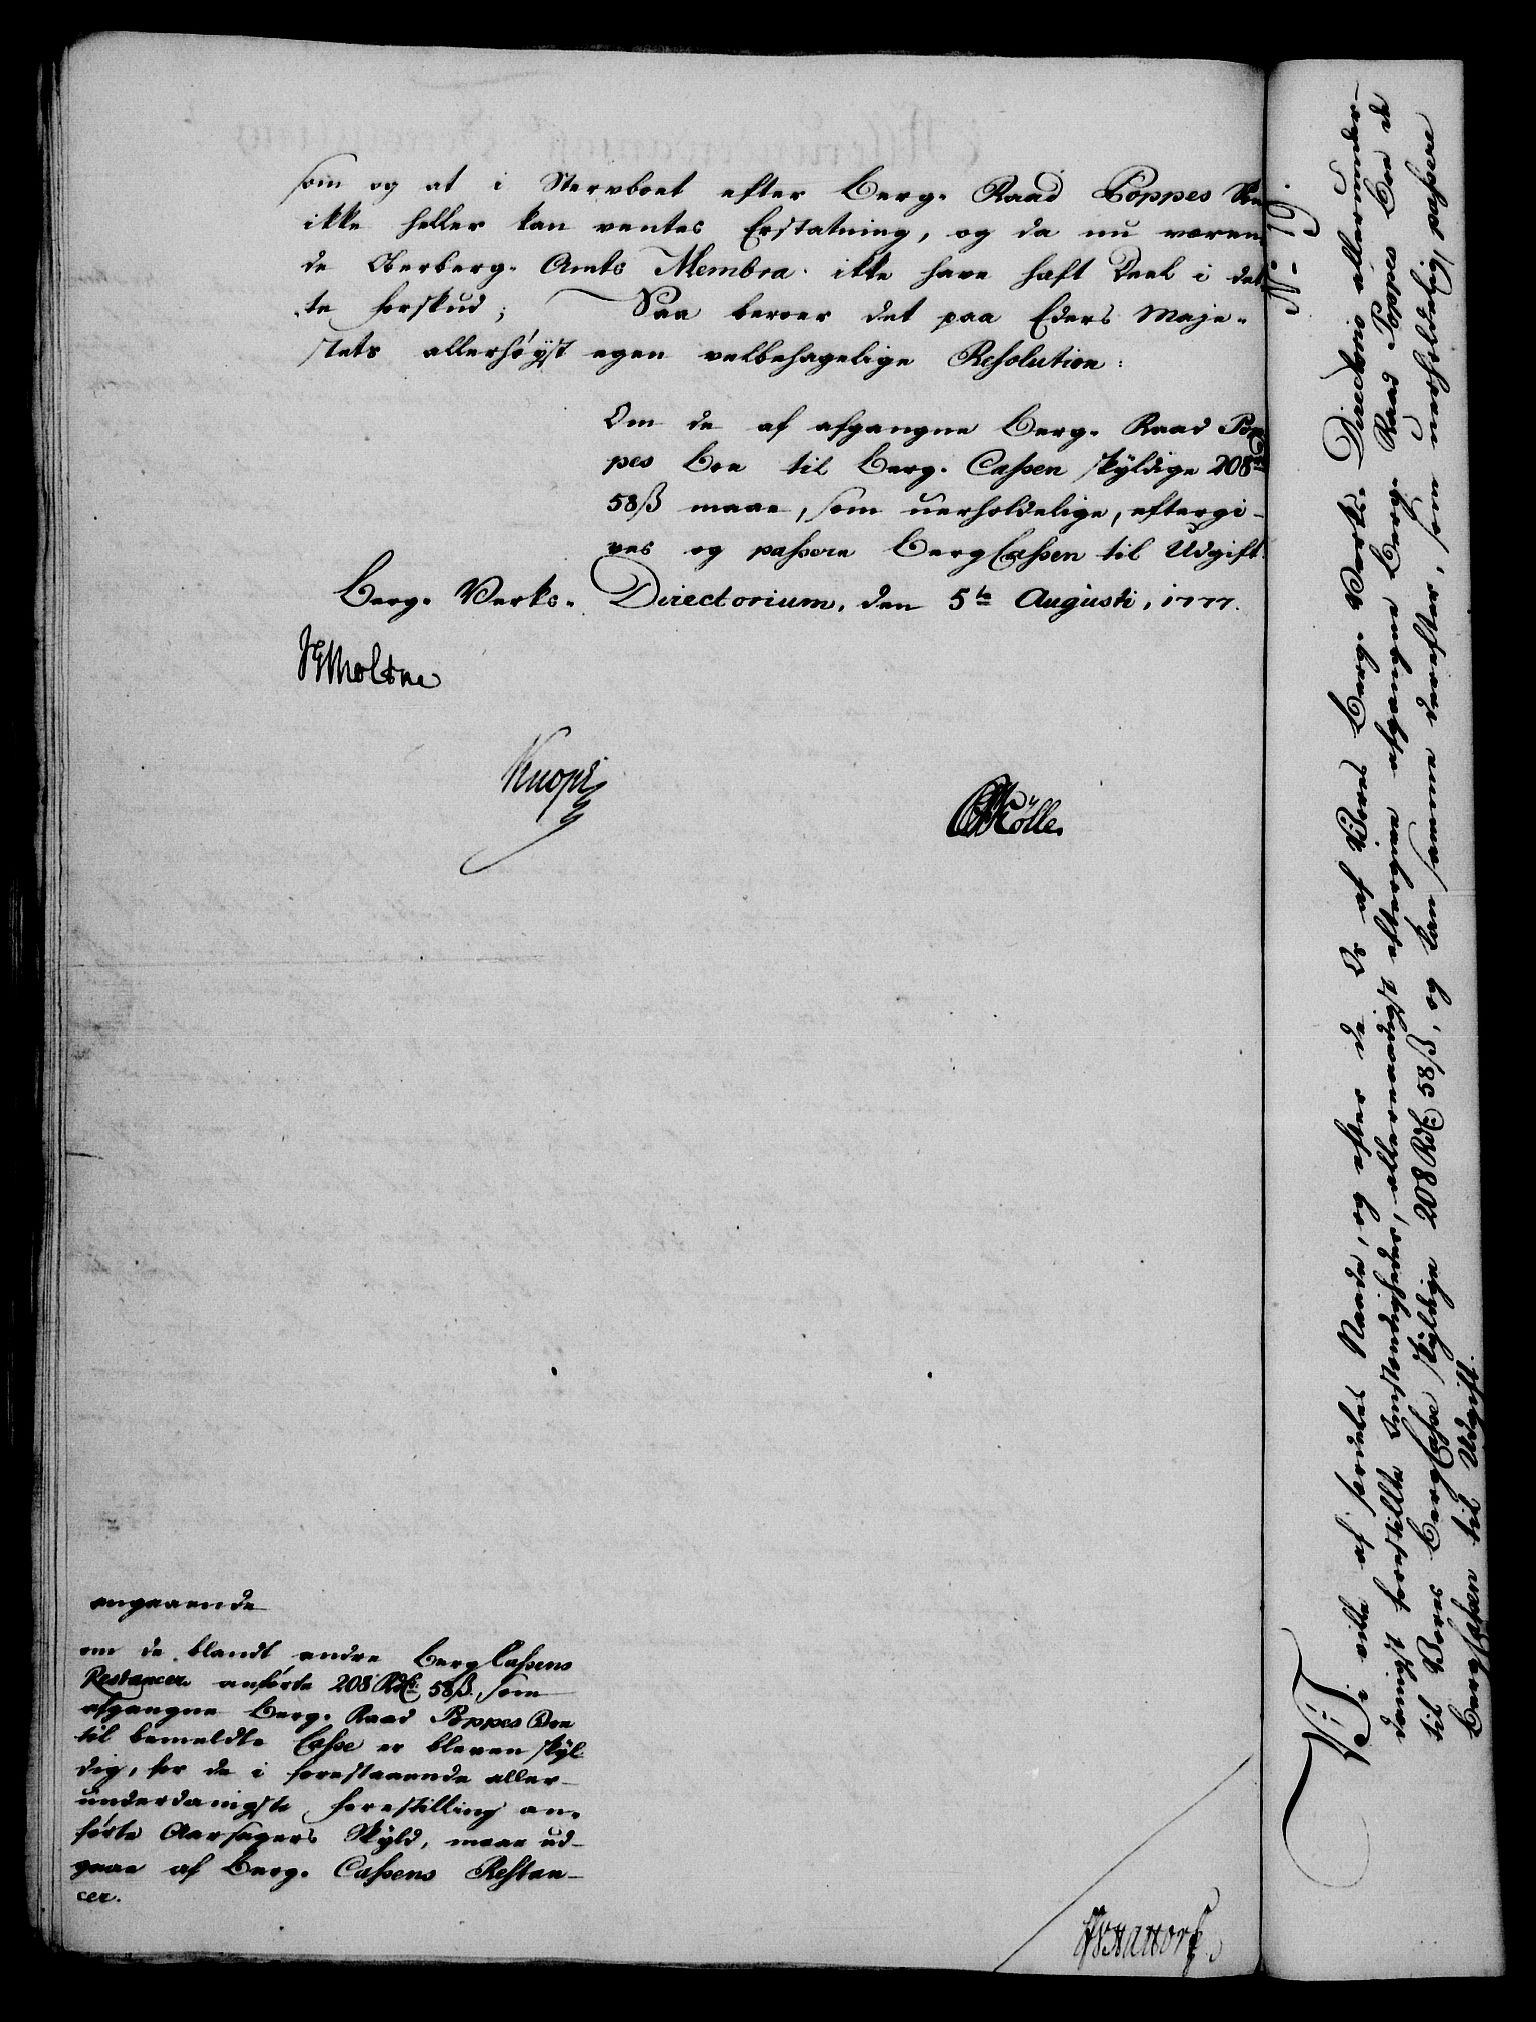 som og at i Stervboet efter Berg- Raad Poppes Boe
ikke heller kan ventes Erstatning, og da nu væren-
de Oberberg- Amts Membra ikke have haft Deel i det-
te Forskud; Saa beroer det paa Eders Maje-
stets allerhøyst egen velbehagelige Resolution:
Om de af afgangne Berg- Raad Pop-
pes Boe til Berg- Cassen skyldige 208 Rd
58 ß maae, som uerholdelige, eftergi-
ves og passere BergCassen til Udgift.
Berg- Verks- Directorium, den 5te Augusti, 1777.
Moltke
Knoph
Mølle
angaaende
om de blandt andre BergCassens
Restancer anførte 208 Rdlr 58 ß, som
afgangne Berg- Raad Poppes Boe
til bemeldte Casse er bleven skyl-
dig, for de i forestaaende aller-
underdanigste Forestilling an-
førte Aarsagers Skyld, maae ud-
gaae af Berg- Cassens Restan-
cer.
No 19.
Vi ville af særdeles Naade, og efter de Os af Vores Berg- Verks- Directorio allerunder-
danigst forestillte Omstændigheder, allernaadigst eftergive afgangne Berg- Raad Poppes Boe de
til Vores BergCasse skyldige 208 Rdlr 58 ß, og kan samme derefter, som uerholdelig passere
BergCassen til Udgift.